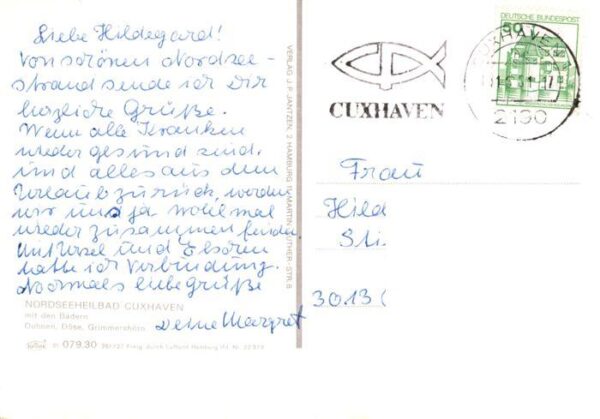 Liebe Hildegard!
Von schönen Nordsee-
strand sende ich Dir
herzliche Grüße.
Wenn alle Kranken
wieder gesund sind,
und alles aus dem
Urlaub zurück, werden
wir uns ja wohl mal
wieder zusammen finden.
Mit Ursel und
hatte ich Verbindung.
Nochmals liebe Grüße
Deine Margret
NORDSEEHEILBAD CUXHAVEN
mit den Bädern
Duhnen, Döse, Grimmershörn
079.30
VERLAG J. P. JANTZEN, 2 HAMBURG
CUXHAVEN
DEUTSCHE BUNDESPOST
50
CUXHAVEN
2190
Frau
Hild
Sti.
3013